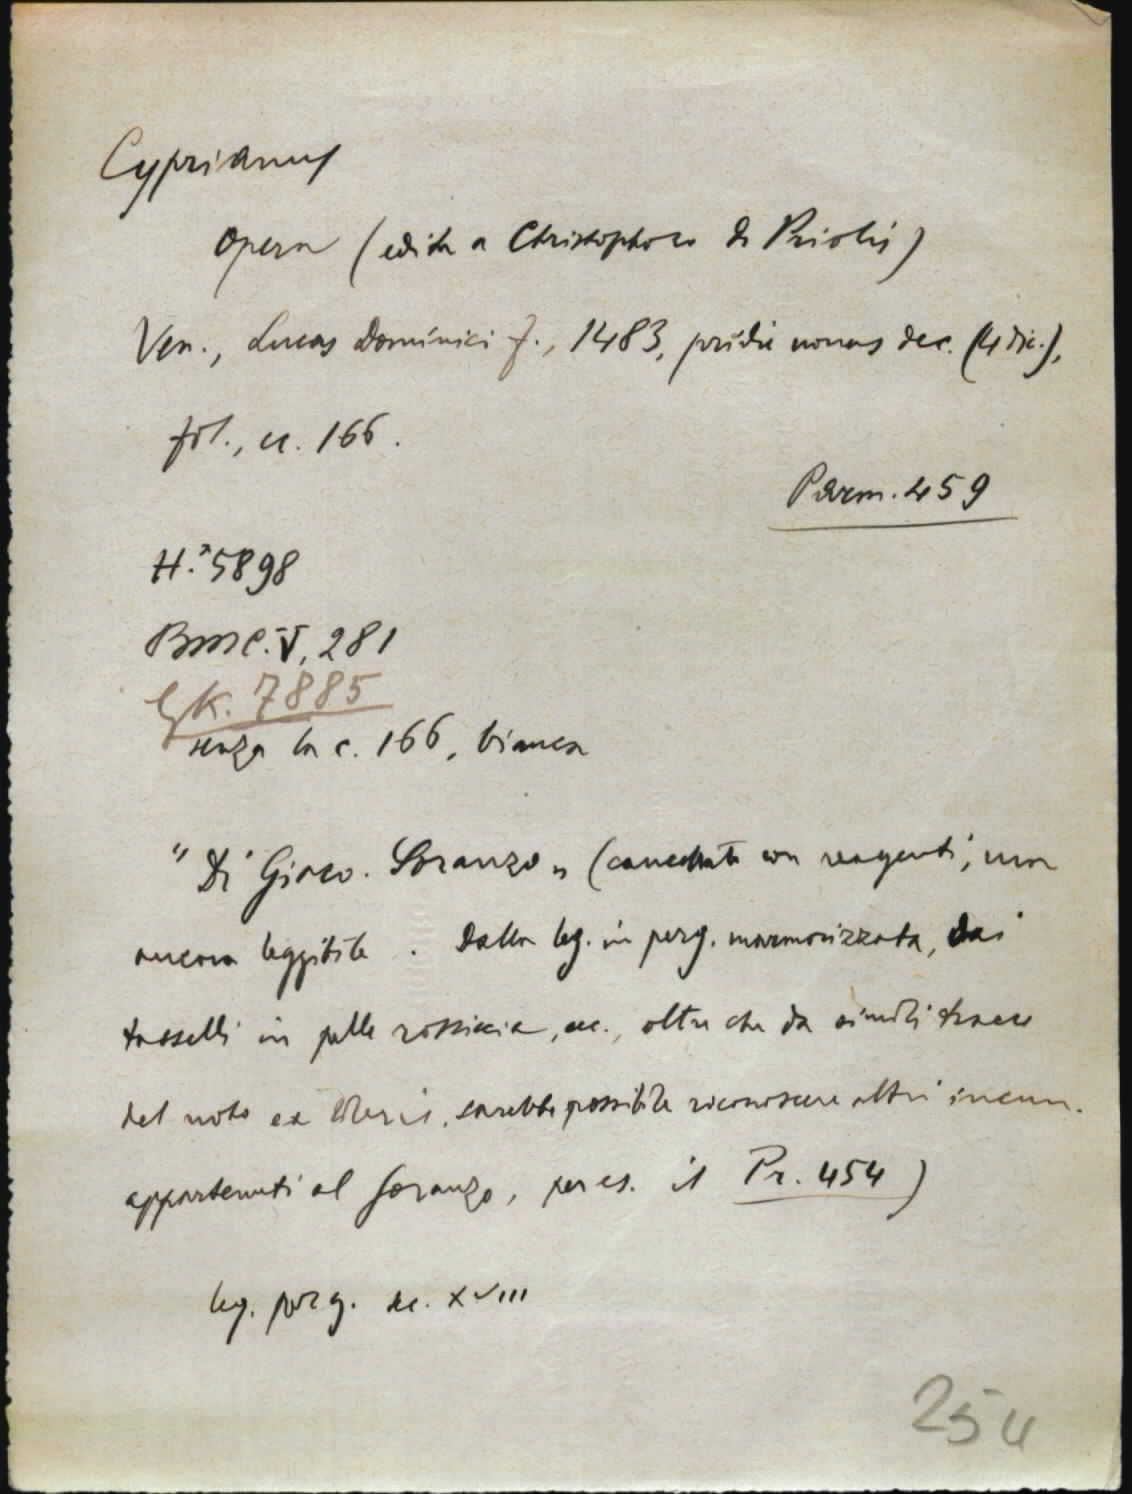 Cyprianus
Opera (edita a Christophoro de Priolis)
Ven., Lucas Dominici f., 1483, pridie nonas dec. (4 dic.),
fol., cc. 166.
Parm. 459
H.* 5898
BMC. V, 281
GK. 7885
senza la c. 166, bianca
"Di Giaco. Soranzo" (cancellata con reagenti, ma
ancora leggibile. Dalla leg. in perg. marmorizzata, dai
tasselli in pelle rossiccia, ecc., oltre che da simili tracce
del noto ex libris, sarebbe possibile riconoscere altri incun.
appartenuti al Soranzo, per es. il Pr. 454)
leg. perg. sec. XVIII
254